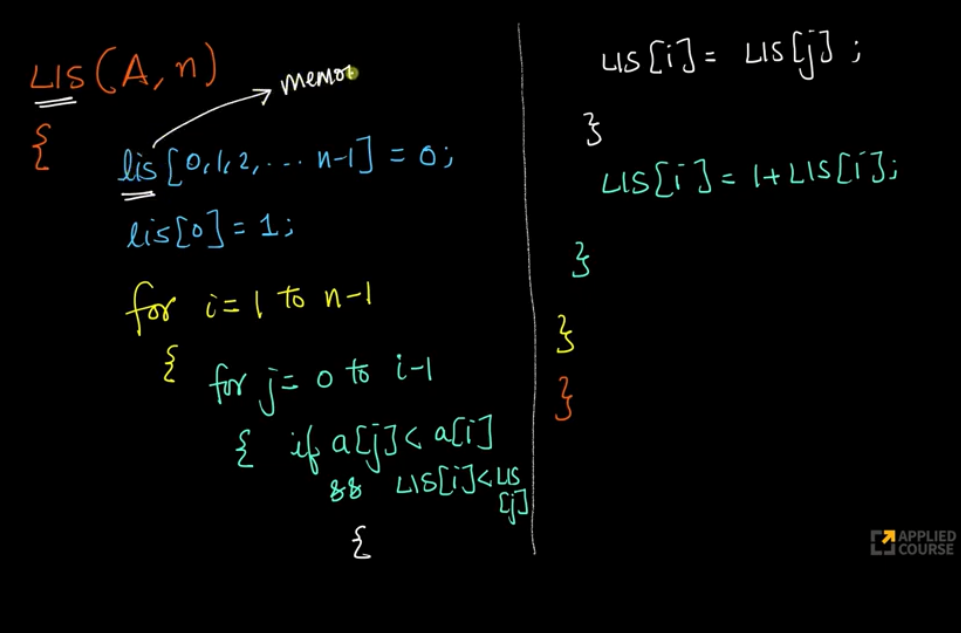 LIS(A, n)
memo
{
lis[0,1,2,... n-1] = 0;
lis[0] = 1;
for i = 1 to n-1
{
for j = 0 to i-1
{ if a[j] < a[i]
&& LIS[i] < LIS
[j]
{
LIS[i] = LIS[j];
}
LIS[i] = 1+LIS[i];
}
}
}
APPLIED
COURSE